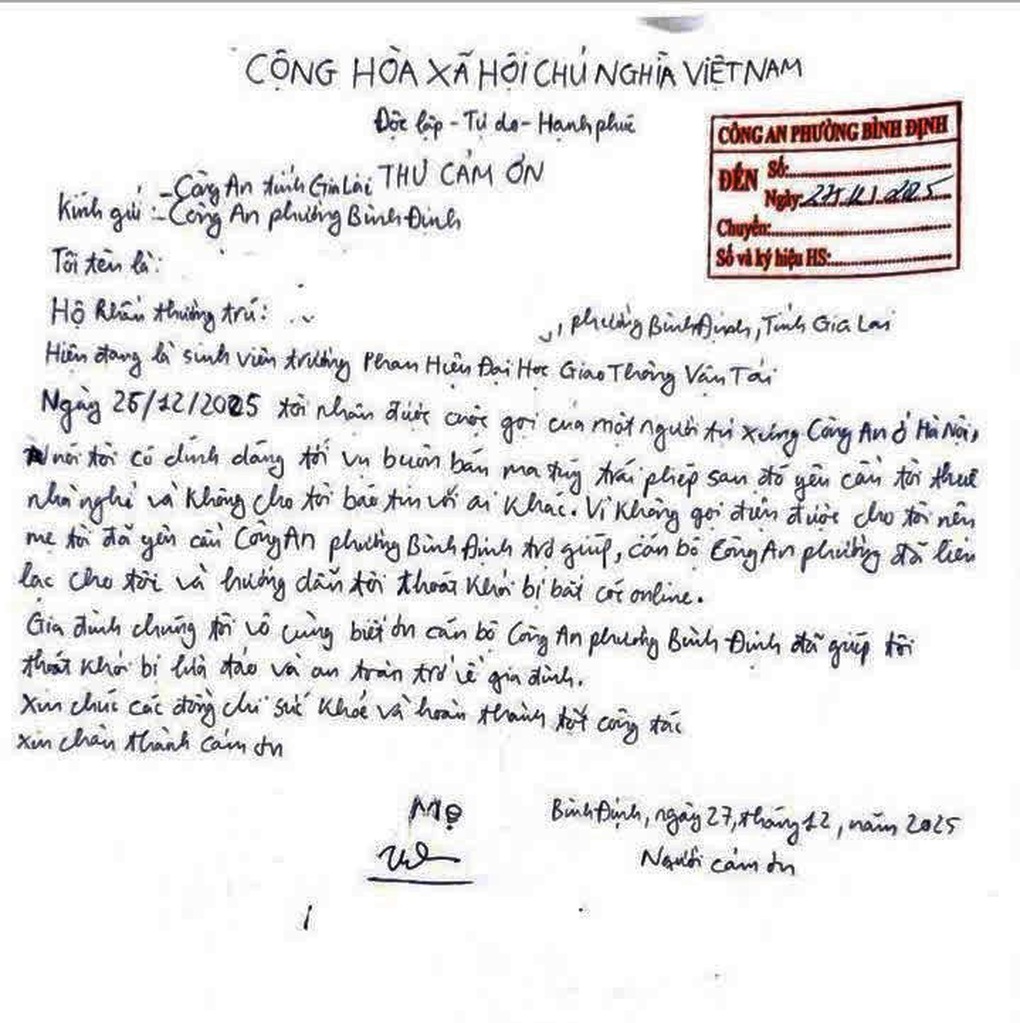 CỘNG HÒA XÃ HỘI CHỦ NGHĨA VIỆT NAM
Độc lập - Tự do - Hạnh phúc
THƯ CẢM ƠN
CÔNG AN PHƯỜNG BÌNH ĐỊNH
ĐẾN Số:
Ngày 27/12/2025
Chuyển:
Số và ký hiệu HS:
Kính gửi: - Công An tỉnh Gia Lai
- Công An phường Bình Định
Tôi tên là:
Hộ khẩu thường trú: , phường Bình Định, Tỉnh Gia Lai
Hiện đang là sinh viên trường Phân Hiệu Đại Học Giao Thông Vận Tải
Ngày 25/12/2025 tôi nhận được cuộc gọi của một người tự xưng Công An ở Hà Nội,
nói tôi có dính dáng tới vụ buôn bán ma túy trái phép sau đó yêu cầu tôi thuê
nhà nghỉ và không cho tôi báo tin với ai khác. Vì không gọi điện được cho tôi nên
mẹ tôi đã yêu cầu Công An phường Bình Định trợ giúp, cán bộ Công An phường đã liên
lạc cho tôi và hướng dẫn tôi thoát khỏi bị bắt cóc online.
Gia đình chúng tôi vô cùng biết ơn cán bộ Công An phường Bình Định đã giúp tôi
thoát khỏi bị lừa đảo và an toàn trở về gia đình.
Xin chúc các đồng chí sức khỏe và hoàn thành tốt công tác
Xin chân thành cảm ơn
Bình Định, ngày 27, tháng 12, năm 2025
Mẹ
Người cảm ơn